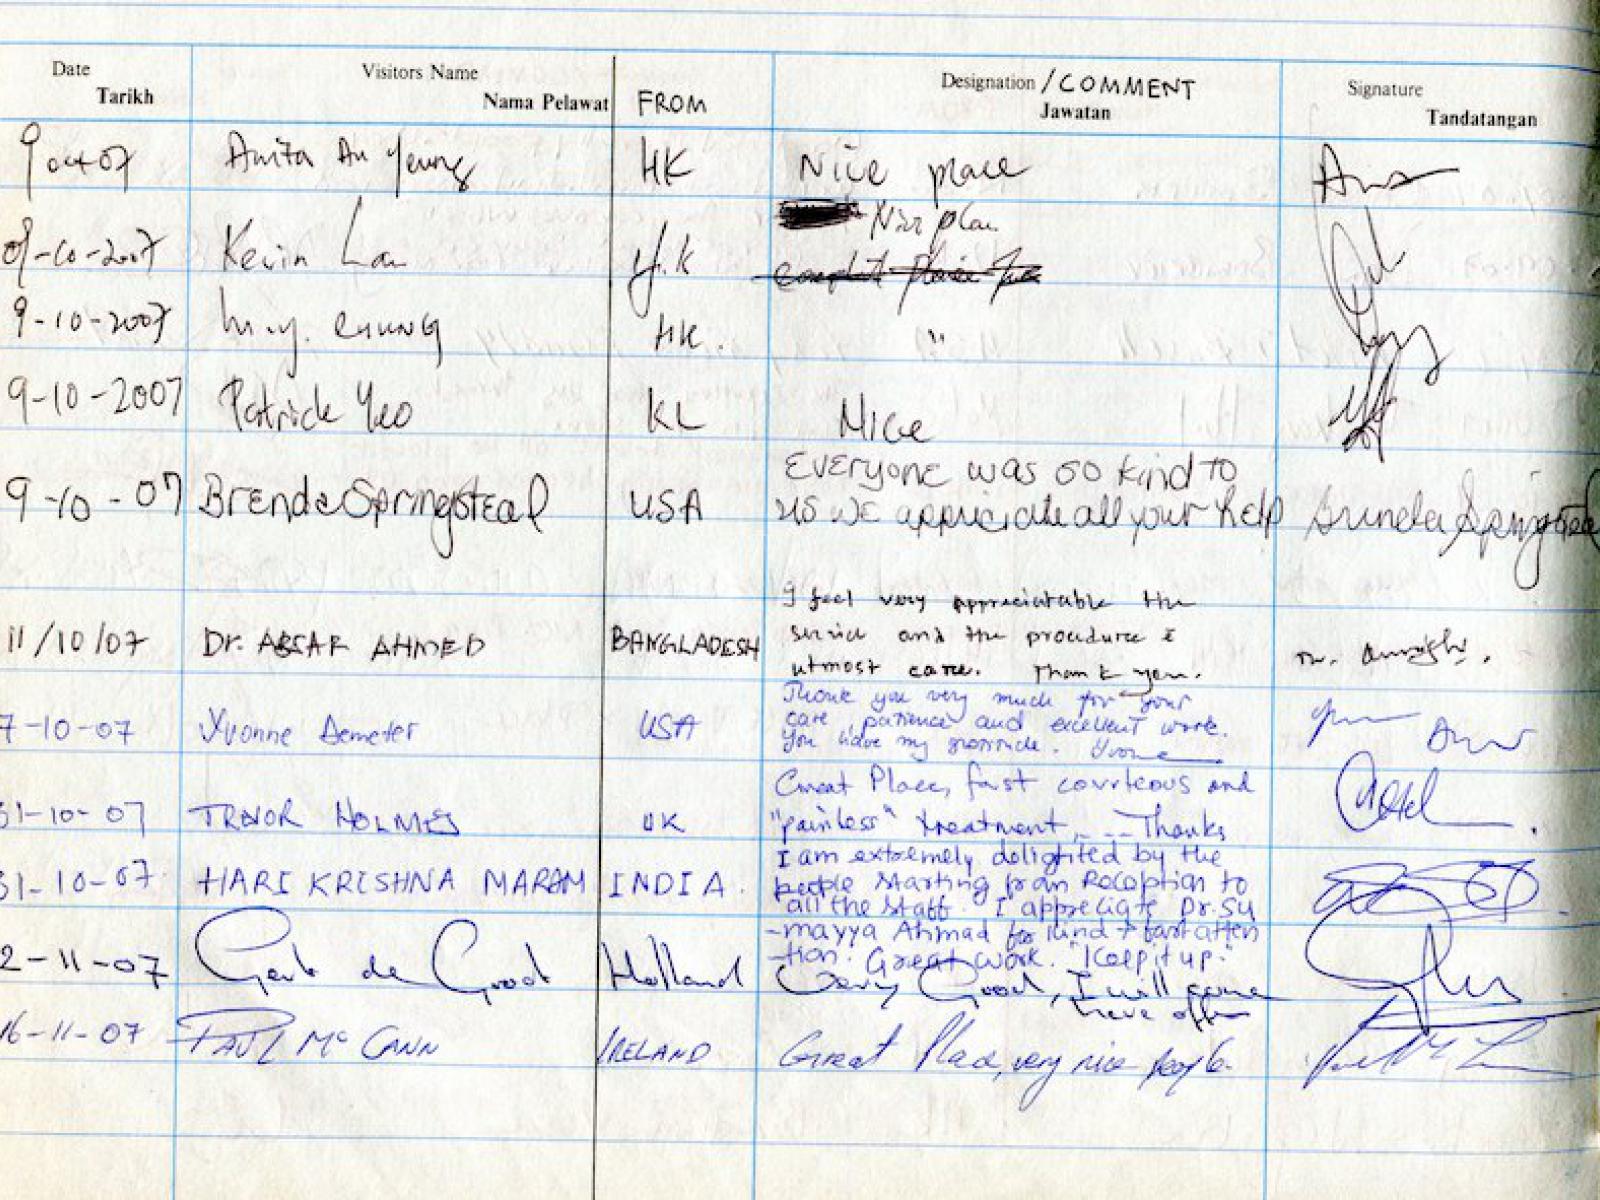 Date Visitors Name Designation /COMMENT Signature
Tarikh Nama Pelawat FROM Jawatan Tandatangan
9 oct 07 Anita Au Yeung HK Nice place
09-10-2007 Kevin Lau H.K Nice place
9-10-2007 CHUNG HK. "
9-10-2007 Patrick Yeo KL Nice
9-10-07 Brenda Springstead USA EVERYONE was so kind to
us WE appriciate all your help Brenda Springstead
11/10/07 Dr. ABSAR AHMED BANGLADESH I feel very appreciatable the
service and the procedure &
utmost care. Thank you.
7-10-07 Yvonne Demeter USA Thank you very much for your
care, patience and excellent work.
You have my gratitude. Yvonne
31-10-07 TREVOR HOLMES UK Great Place, fast courteous and
"painless" treatment, -- Thanks
31-10-07. HARI KRISHNA MARAM INDIA. I am extremely delighted by the
people starting from Reception to
all the staff. I appreciate Dr. Su
-mayya Ahmad for kind + fast atten
-tion. Great work. "Keep it up."
2-11-07 de Groot Holland Very Good, I will come
here often
16-11-07 PAUL McCANN IRELAND Great Place, very nice people.